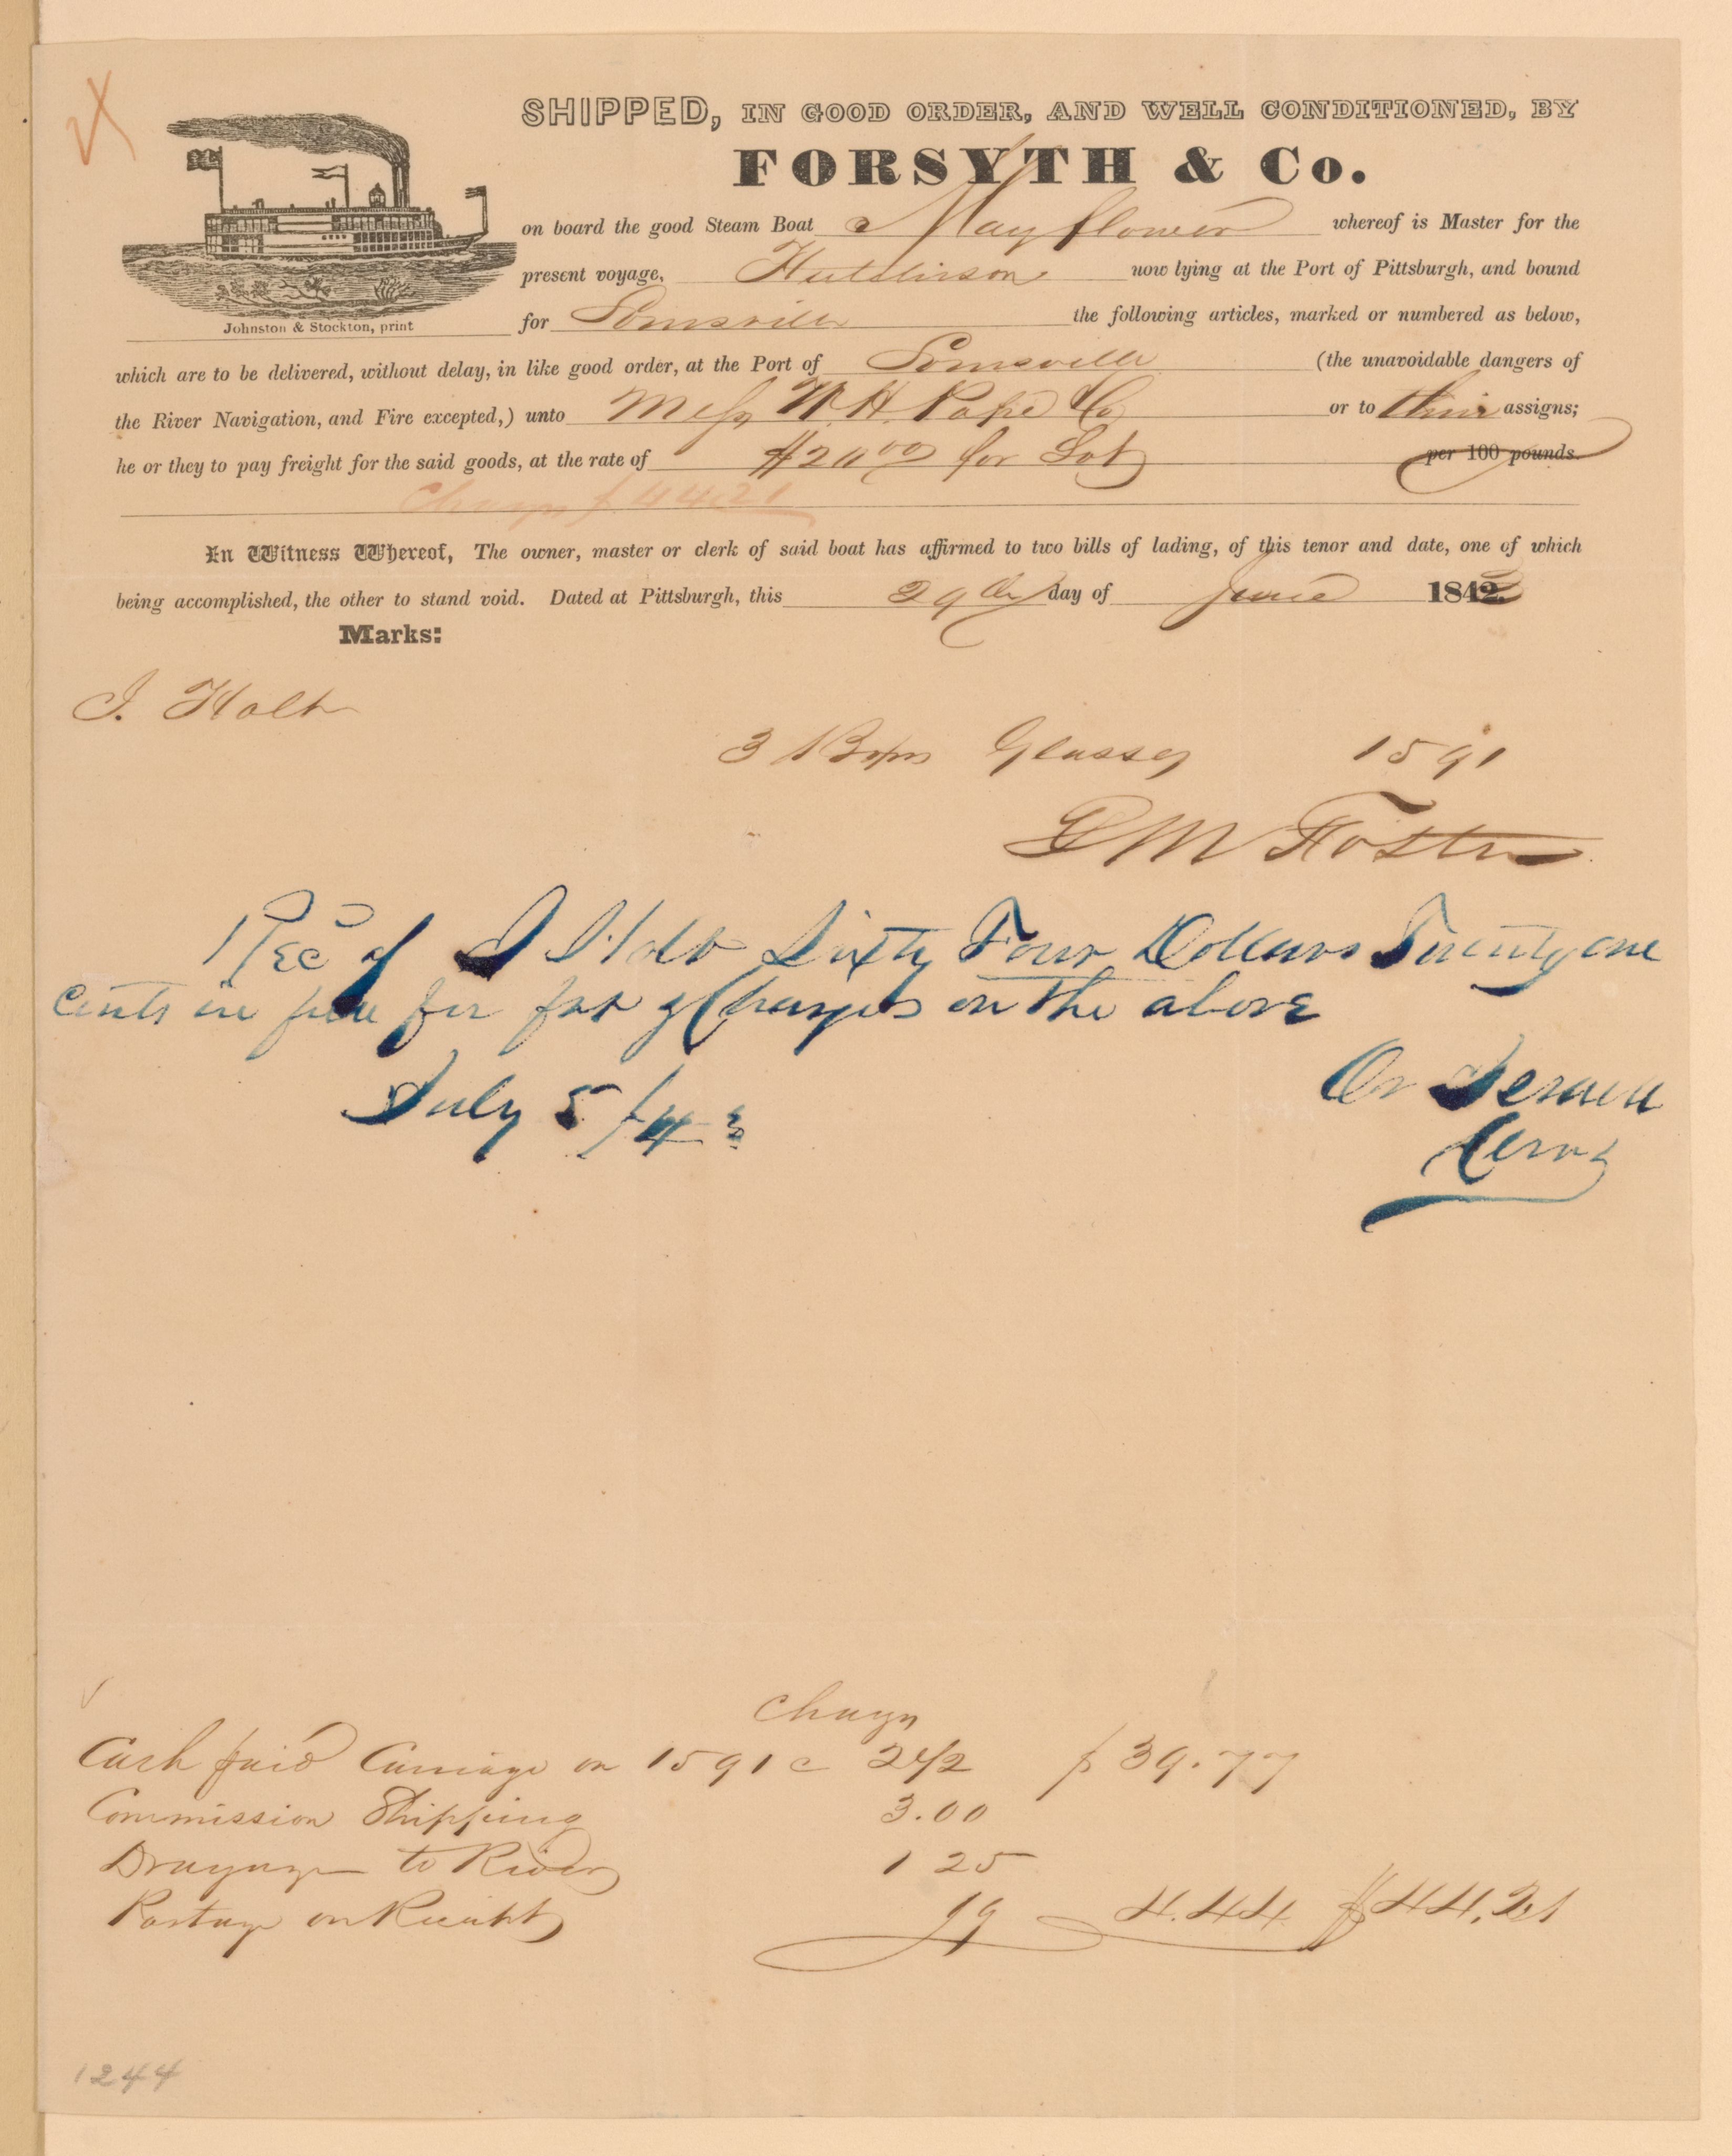 SHIPPED, IN GOOD ORDER, AND WELL CONDITIONED, BY
FORSYTH & Co.
on board the good Steam Boat Mayflower whereof is Master for the
present voyage, Hutchinson now lying at the Port of Pittsburgh, and bound
Johnston & Stockton, print
for Louisville the following articles, marked or numbered as below,
which are to be delivered, without delay, in like good order, at the Port of Louisville (the unavoidable dangers of
the River Navigation, and Fire excepted,) unto Mess W. H. Pope & Co or to their assigns;
he or they to pay freight for the said goods, at the rate of $20.00 for Lot per 100 pounds.
Charges $44.21
In Witness Whereof, The owner, master or clerk of said boat has affirmed to two bills of lading, of this tenor and date, one of which
being accomplished, the other to stand void. Dated at Pittsburgh, this 29th day of June 184
Marks:
J. Holt
3 Boxes Glasses 1591
G M Foster
Rec of J Holt Sixty Four Dollars Twenty one
Cents in full for frt & Charges on the above
July 5/43
Charges
Cash paid Carriage on 1591 c 2 1/2 $39.77
Commission Shipping 3.00
Drayage to River 1 25
Postage on Receipt 19 4.44 $44.21
1244